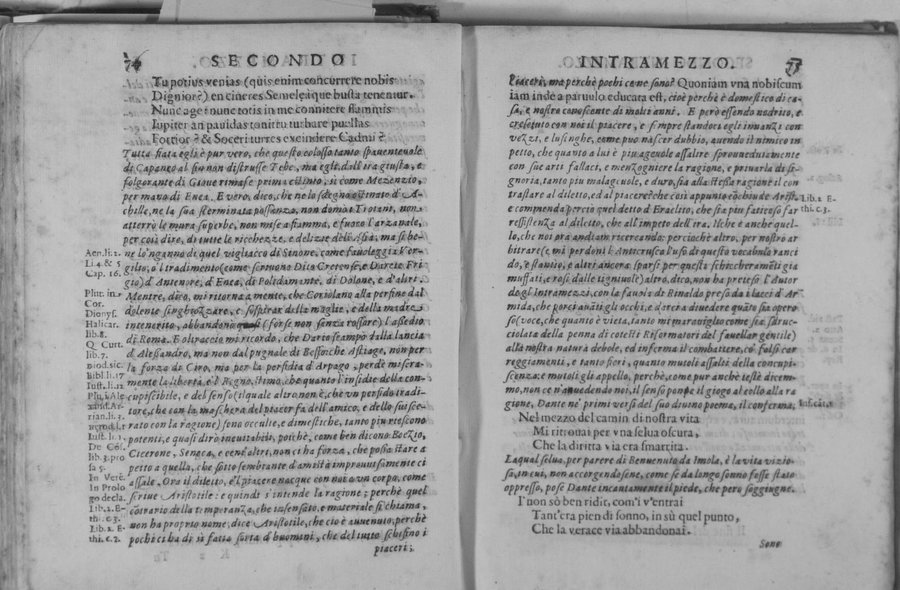 74 SECONDO
Tu potius venias (quis enim concurrere nobis
Dignior?) en cineres Semeleiaque busta tenentur.
Nunc age nunc totis in me connitere flammis
Iupiter: an pauidas tonitru turbare puellas
Fortior? & Soceri turres exscindere Cadmi?
Tutta fiata egli è pur vero, che questo colosso tanto spauenteuole
di Capaneo al fin non distrusse Tebe, ma egli dall'ira giusta, e
folgorante di Gioue rimase prima estinto, sì come Mezenzio,
per mano di Enea. E vero, dico, che ne lo sdegno ostinato d'A-
chille, ne la sua sterminata possanza, non domò i Troiani, non
atterrò le mura superbe, non mise a fiamma, e fuoco l'arzanale,
per così dire, di tutte le ricchezze, e delizie dell'Asia, ma sì be-
ne lo'nganno di quel vigliacco di Sinone, come fauoleggia Vir-
gilio, o'l tradimento (come scriuono Dite Cretense, e Darete Fri
gio) d'Antenore, d'Enea, di Polidamante, di Dolone, e d'altri.
Mentre, dico, mi ritorna a mente, che Coriolano alla perfine dal
dolente singhiozzare, e sospirar della moglie, e della madre
intenerito, abbandonò quasi (forse non sanza rossore) l'asedio
di Roma. E oltracciò mi ricordo, che Dario scampò dalla lancia
d'Alessandro, ma non dal pugnale di Besso: che Astiage, non per
la forza di Ciro, ma per la perfidia d'Arpago, perdè misera-
mente la libertà, e'l Regno, stimo, che quanto l'insidie della con-
cupiscibile, e del senso (il quale altro non è, che vn perfido tradi-
tore, che con la maschera del piacer fa dell'amico, e dello suisce-
rato con la ragione) sono occulte, e dimestiche, tanto più riescono
potenti, e quasi dirò ineuitabili, poichè, come ben dicono Boezio,
Cicerone, Seneca, e cent'altri, non ci ha forza, che possa stare a
petto a quella, che sotto sembrante d'amistà improuisamente ci
assale. Ora il diletto, e'l piacere nacque con noi a vn corpo, come
scriue Aristotile: e quindi s'intende la ragione; perchè quel
contrario della temperanza, che insensato, e materiale si chiama,
non ha proprio nome, dice Aristotile, che ciò è auuenuto, perchè
pochi ci ha di sì fatta sorta d'huomini, che del tutto schifino i
piaceri;
Aen. li. 2.
Li 4 & 5
Cap. 16.
Plut. in
Cor.
Dionys.
Halicar.
lib. 8.
Q. Curt.
lib. 7.
Diod. sic.
lib. 17
Iust. li. 12
rian. li. 3.
Iust. li. 1.
De Cōs.
lib. 3. pro
sa 5.
In Verr.
In Prolo
go decla.
Lib. 2. E-
thi. c. 3.
Lib. 2. E-
thi. c. 7.
INTRAMEZZO. 75
Piaceri, ma perchè pochi ce ne sono? Quoniam vna nobiscum
iam inde a paruulo educata est, cioè perchè è domestico di ca-
sa, e nostro conoscente di molti anni. E però essendo nodrito, e
cresciuto con noi il piacere, e sempre standoci egli innanzi con
vezzi, e lusinghe, come può nascer dubbio, auendo il nimico in
petto, che quanto a lui è più ageuole assalire sprouedutamente
con sue arti fallaci, e menzognere la ragione, e priuarla di si-
gnoria, tanto più malageuole, e duro, sia alla stessa ragione il con
trastare al diletto, ed al piacere? che così appunto cōchiude Arist.
e commenda perciò quel detto d'Eraclito, che sia più faticoso far
resistenza al diletto, che all'impeto dell'ira. Ilche è anche quel-
lo, che noi pra andiam ricercando: perciochè altro, per nostro ar
bitrare (e mi perdoni l'Anticrusca l'vso di questo vocabul a ranci
do, e stantio, e altri ancora sparsi per questi schizcheramēti gia
muffati, e rosi dalle tignuole) altro, dico, non ha preteso l'Autor
degl'Intramezzi, con la fauola di Rinaldo preso da i lacci d'Ar
mida, che porci auāti gli occhi, e farci a diuedere quāto sia opero
so (voce, che quanto è vieta, tanto mi marauiglio come sia sdruc
ciolata della penna di cotesti Riformatori del fauellar gentile)
alla nostra natura debole, ed inferma il combattere, cō falsi cor
reggiamenti, e tanto fieri, quanto mutoli assalti della concupi-
scenza: e mutoli gli appello, perchè, come pur anche testè dicem-
mo, non ce n'auuedendo noi, il senso pone il giogo al collo alla ra
gione. Dante ne' primi versi del suo diuino poema, il conferma,
Nel mezzo del camin di nostra vita
Mi ritrouai per vna selua oscura,
Che la diritta via era smarrita.
La qual selua, per parere di Benuenuto da Imola, è la vita vizio-
sa, in cui, non accorgendosene, come se da lungo sonno fosse stato
oppresso, pose Dante incautamente il piede, che però soggiugne.
I' non sò ben ridir, com'i v'entrai
Tant'era pien di sonno, in sù quel punto,
Che la verace via abbandonai.
Sono
Lib. 2 E-
thi. c. 3.
Inf. cāt. 1.